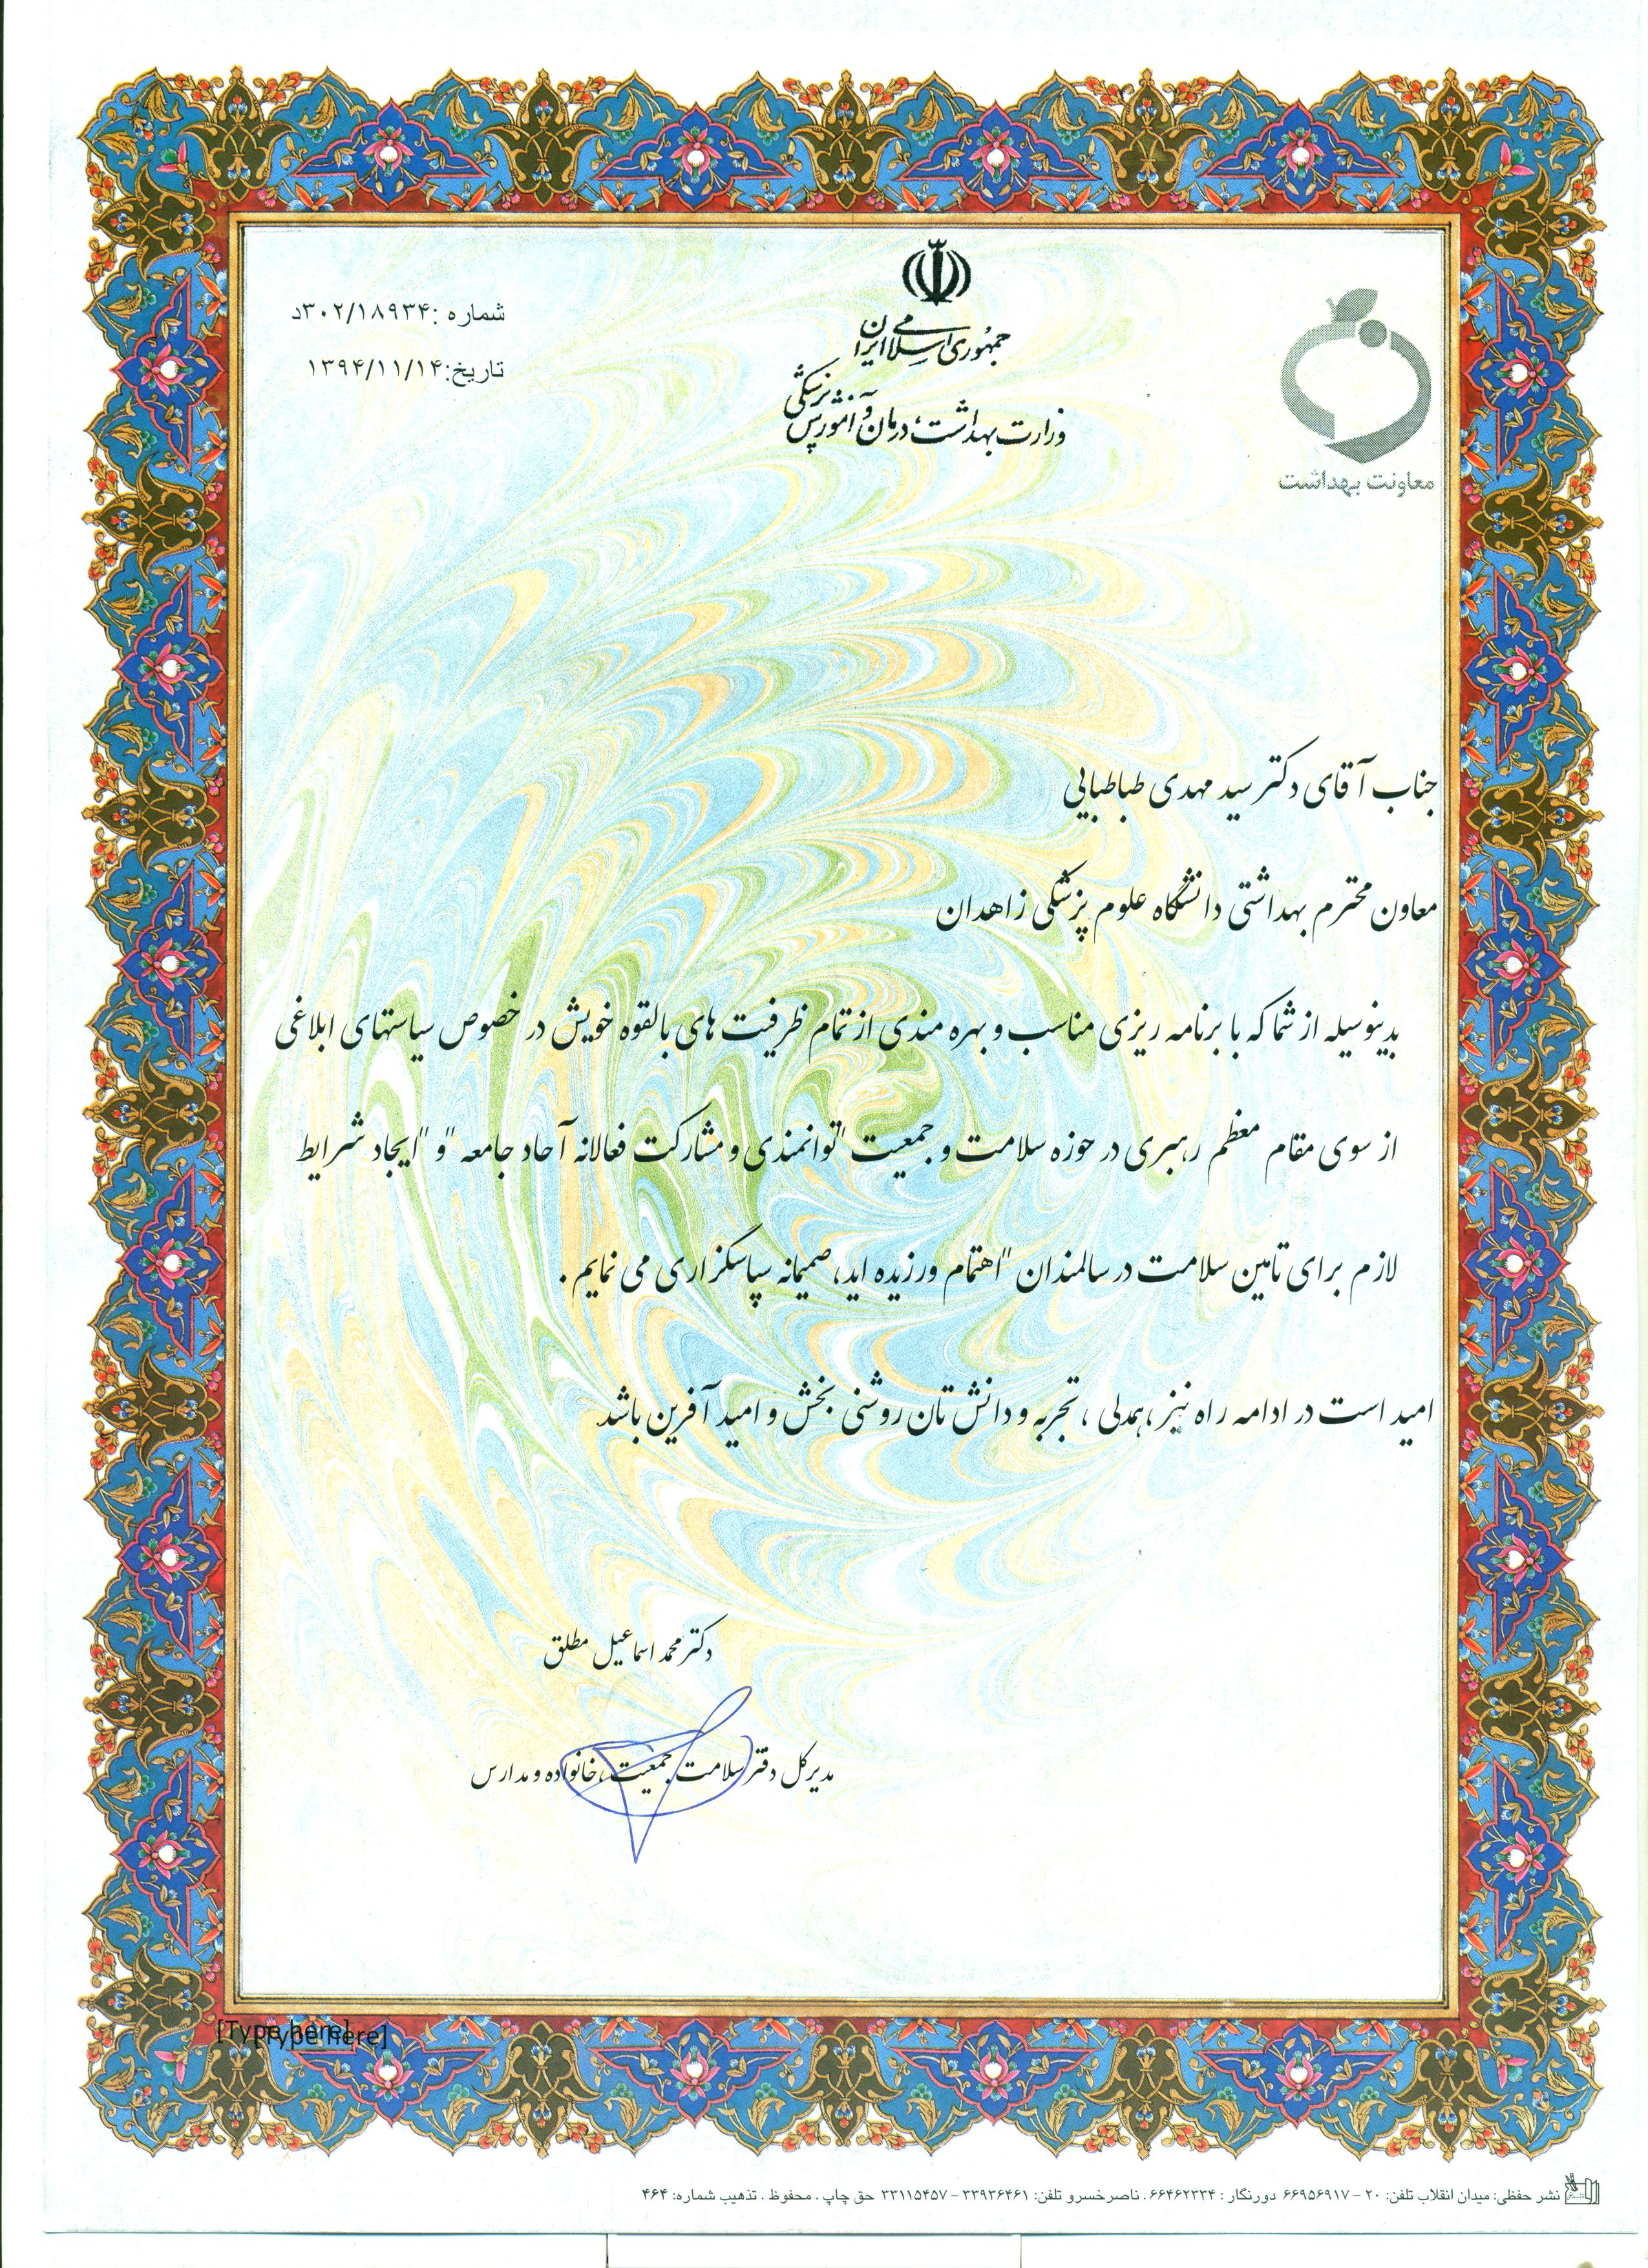 جمهوری اسلامی ایران
وزارت بهداشت، درمان و آموزش پزشکی
معاونت بهداشت
شماره :۳۰۲/۱۸۹۳۴د
تاریخ:۱۳۹۴/۱۱/۱۴
جناب آقای دکتر سید مهدی طباطبایی
معاون محترم بهداشتی دانشگاه علوم پزشکی زاهدان
بدینوسیله از شما که با برنامه ریزی مناسب و بهره مندی از تمام ظرفیت های بالقوه خویش در خصوص سیاستهای ابلاغی
از سوی مقام معظم رهبری در حوزه سلامت و جمعیت "توانمندی و مشارکت فعالانه آحاد جامعه "و "ایجاد شرایط
لازم برای تامین سلامت در سالمندان "اهتمام ورزیده اید، صمیمانه سپاسگزاری می نمایم .
امید است در ادامه راه نیز ،همدلی ، تجربه و دانش تان روشنی بخش و امید آفرین باشد.
دکتر محمد اسماعیل مطلق
مدیرکل دفتر سلامت جمعیت، خانواده و مدارس
[Type here]
[Type here]
نشر حفظی: میدان انقلاب تلفن: ۲۰ - ۶۶۹۵۶۹۱۷ دورنگار : ۶۶۴۶۲۳۳۴ . ناصرخسرو تلفن: ۳۳۹۳۶۴۶۱ - ۳۳۱۱۵۴۵۷ حق چاپ . محفوظ . تذهیب شماره: ۴۶۴